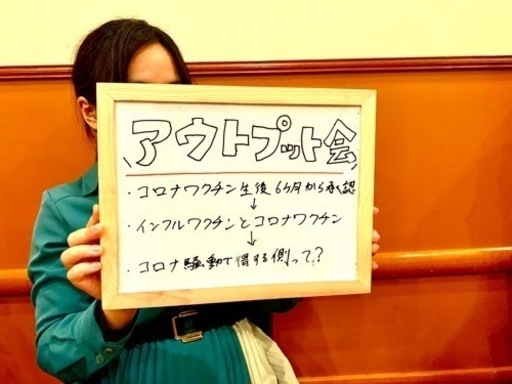 \アウトプット会/
・コロナワクチン生後6ヶ月から承認
↓
・インフルワクチンとコロナワクチン
↓
・コロナ騒動で得する側って?